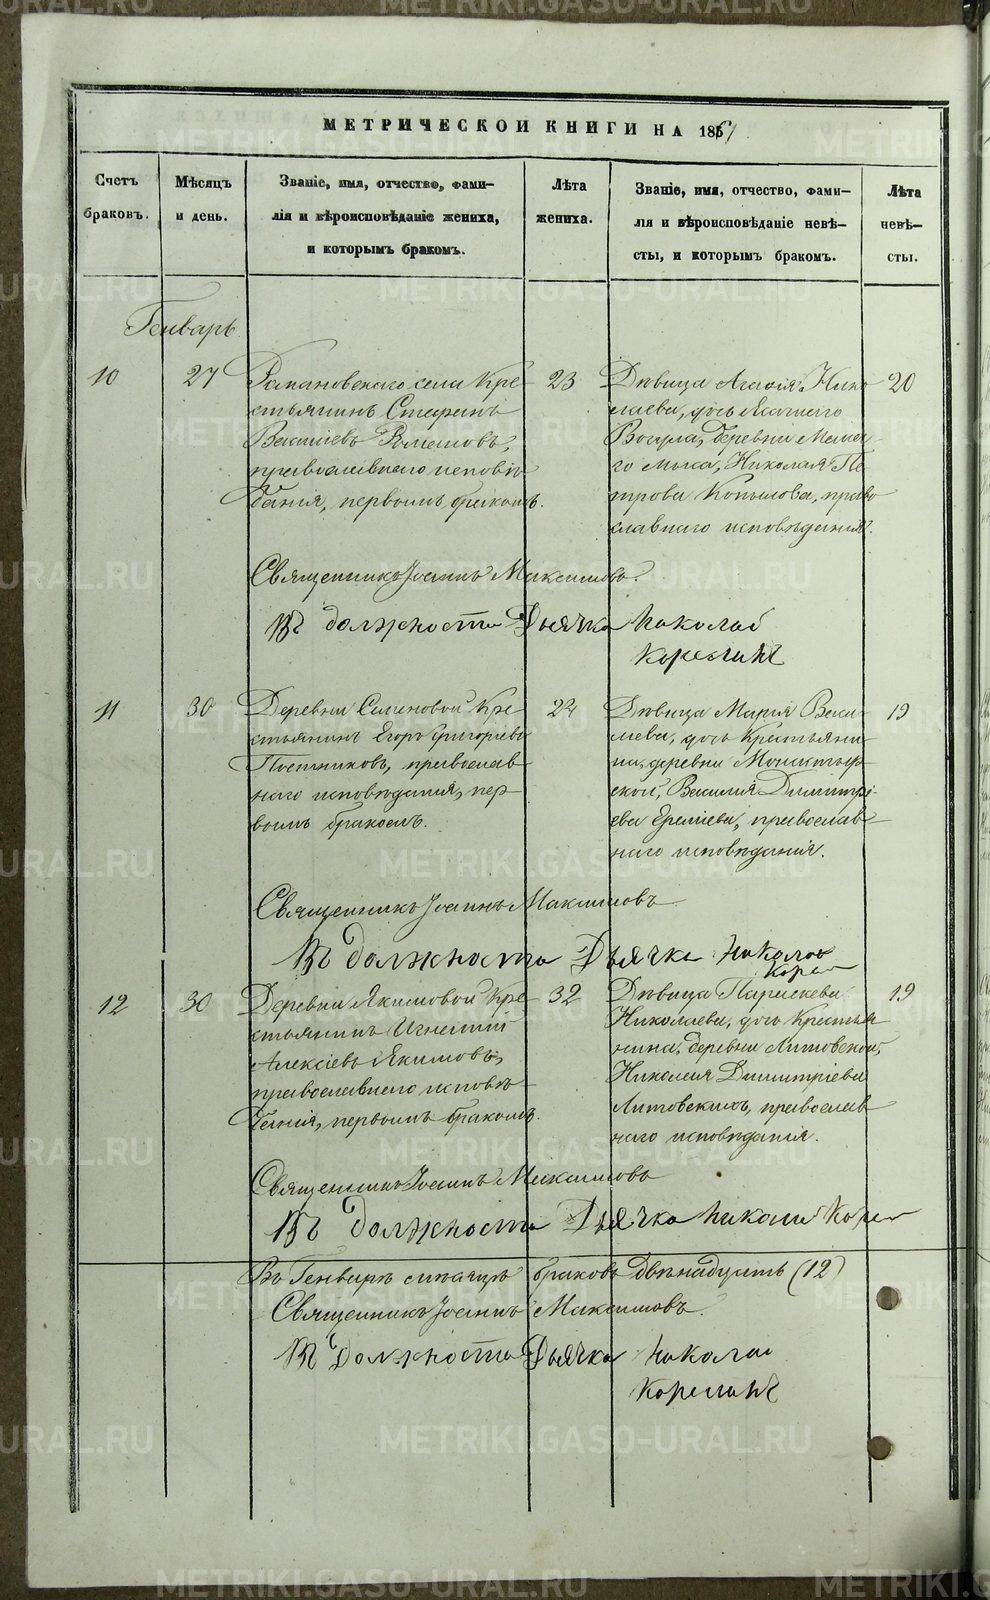 МЕТРИЧЕСКОЙ КНИГИ НА 1861
Счетъ браковъ.
Мѣсяцъ и день.
Званіе, имя, отчество, фами-
лія и вѣроисповѣданіе жениха,
и которымъ бракомъ.
Лѣта жениха.
Званіе, имя, отчество, фами-
лія и вѣроисповѣданіе невѣ-
сты, и которымъ бракомъ.
Лѣта невѣ-
сты.
Генварь
10
27
Романовскаго села Кре-
стьянинъ Стефанъ
Василіевъ Романовъ,
православнаго исповѣ-
данія, первымъ бракомъ.
23
Дѣвица Агафія Нико
лаева, дочь Ясашнаго
Вогула, деревни
Николая Пе-
трова Копылова, право
славнаго исповѣданія.
20
Священникъ Іоаннъ Максимовъ.
Въ должности Дьячка Николай
Корелинъ
11
30
Деревни Семеновой Кре-
стьянинъ Егоръ Григорьевъ
Постниковъ, православ-
наго исповѣданія, пер-
вымъ бракомъ.
22
Дѣвица Марія Васи-
ліева, дочь Крестьяни-
на, деревни
Василія Димитрі-
ева Еремѣева, православ-
наго исповѣданія.
19
Священникъ Іоаннъ Максимовъ
Въ должности Дьячка Николай
Корел
12
30
Деревни Якимовой Кре-
стьянинъ Игнатій
Алексіевъ Якимовъ,
православнаго исповѣ-
данія, первымъ бракомъ.
32
Дѣвица Параскева
Николаева, дочь Крестья
нина, деревни Литовской,
Николая Димитріева
Литовскихъ, православ
наго исповѣданія.
19
Священникъ Іоаннъ Максимовъ
Въ должности Дьячка Николай Корел
Въ Генварѣ мѣсяцѣ браковъ двѣнадцать (12)
Священникъ Іоаннъ Максимовъ.
Въ Должности Дьячка Николай
Корелинъ
METRIKI.GASO-URAL.RU